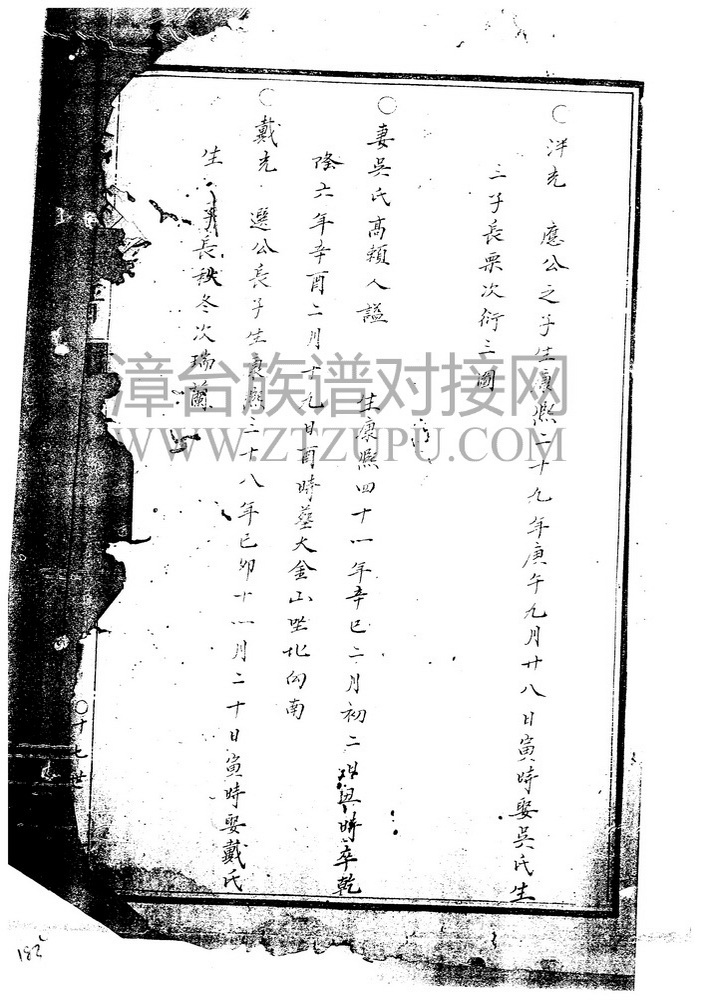 ○ 洋光 應公之子生康熙二十九年庚午九月廿八日寅時娶吳氏生
三子長栗次衍三國
○
妻吳氏高頼人謚 生康熙四十一年辛巳二月初二日 時卒乾
隆六年辛酉二月十九日酉時葬大金山坐北向南
○ 戴光 選公長子生康熙三十八年己卯十一月二十日寅時娶戴氏
生 子長秋冬次瑞蘭
○十七世
漳台族谱对接网
WWW.ZTZUPU.COM
182